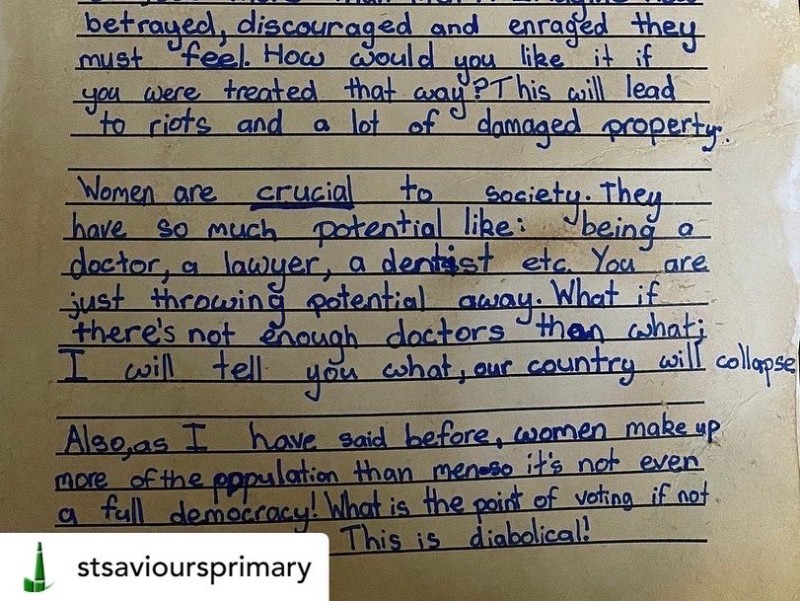 betrayed, discouraged and enraged they
must feel. How would you like it if
you were treated that way? This will lead
to riots and a lot of damaged property.
Women are crucial to society. They
have so much potential like: being a
doctor, a lawyer, a dentist etc. You are
just throwing potential away. What if
there's not enough doctors than what;
I will tell you what, our country will collapse
Also, as I have said before, women make up
more of the population than men so it's not even
a full democracy! What is the point of voting if not
This is diabolical!
stsavioursprimary